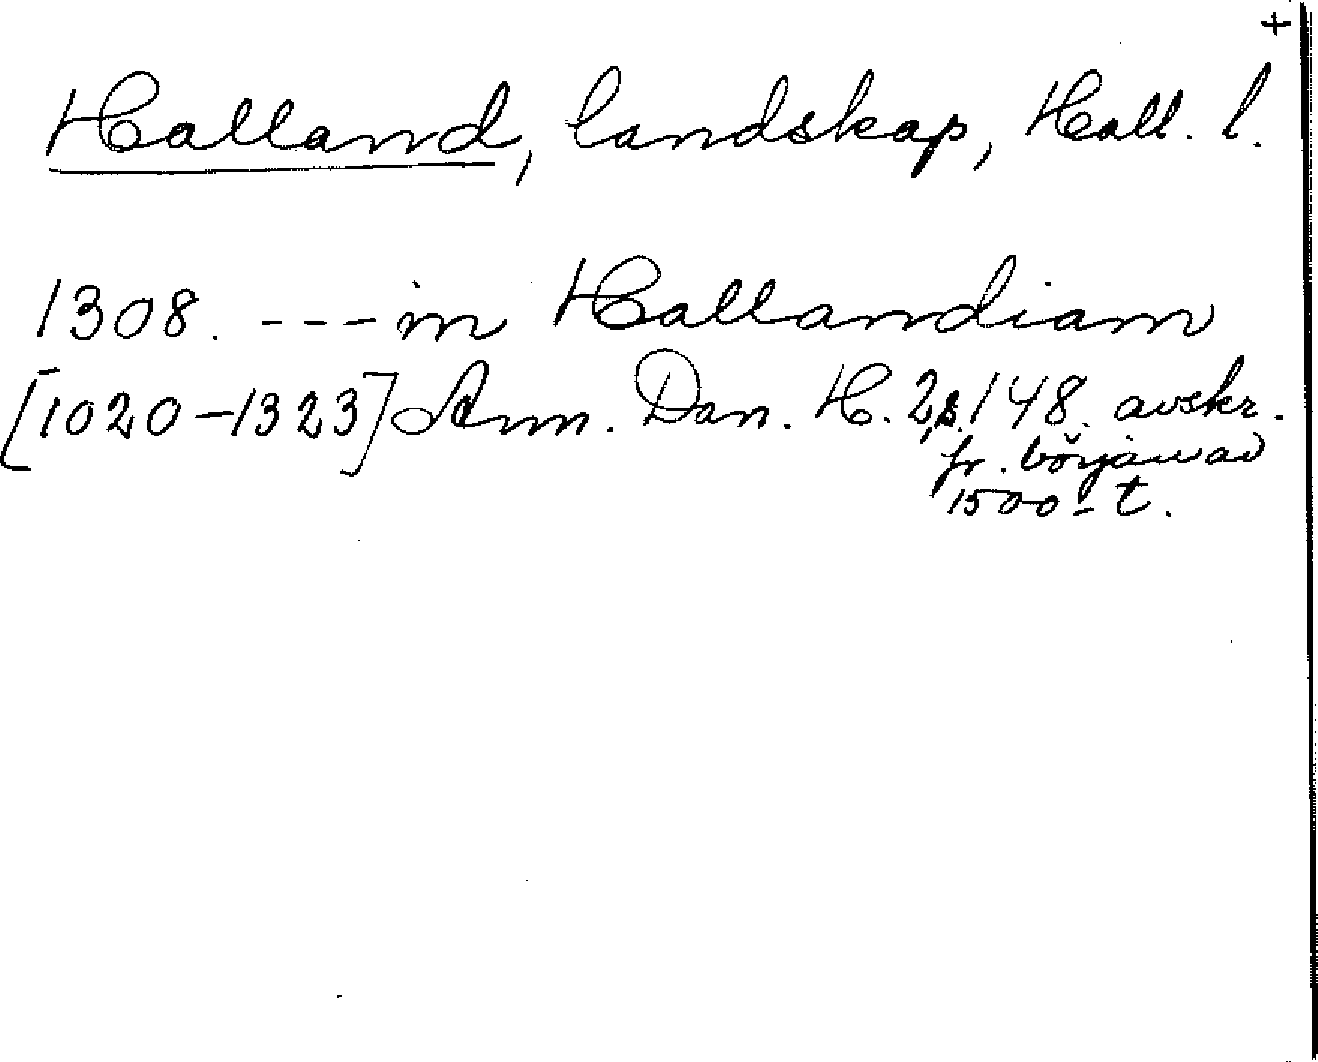 +
Halland, landskap, Hall. l.
1308. --- in Hallandiam
[1020-1323] Ann. Dan. H. 2, s. 148. avskr.
fr. början av
1500-t.